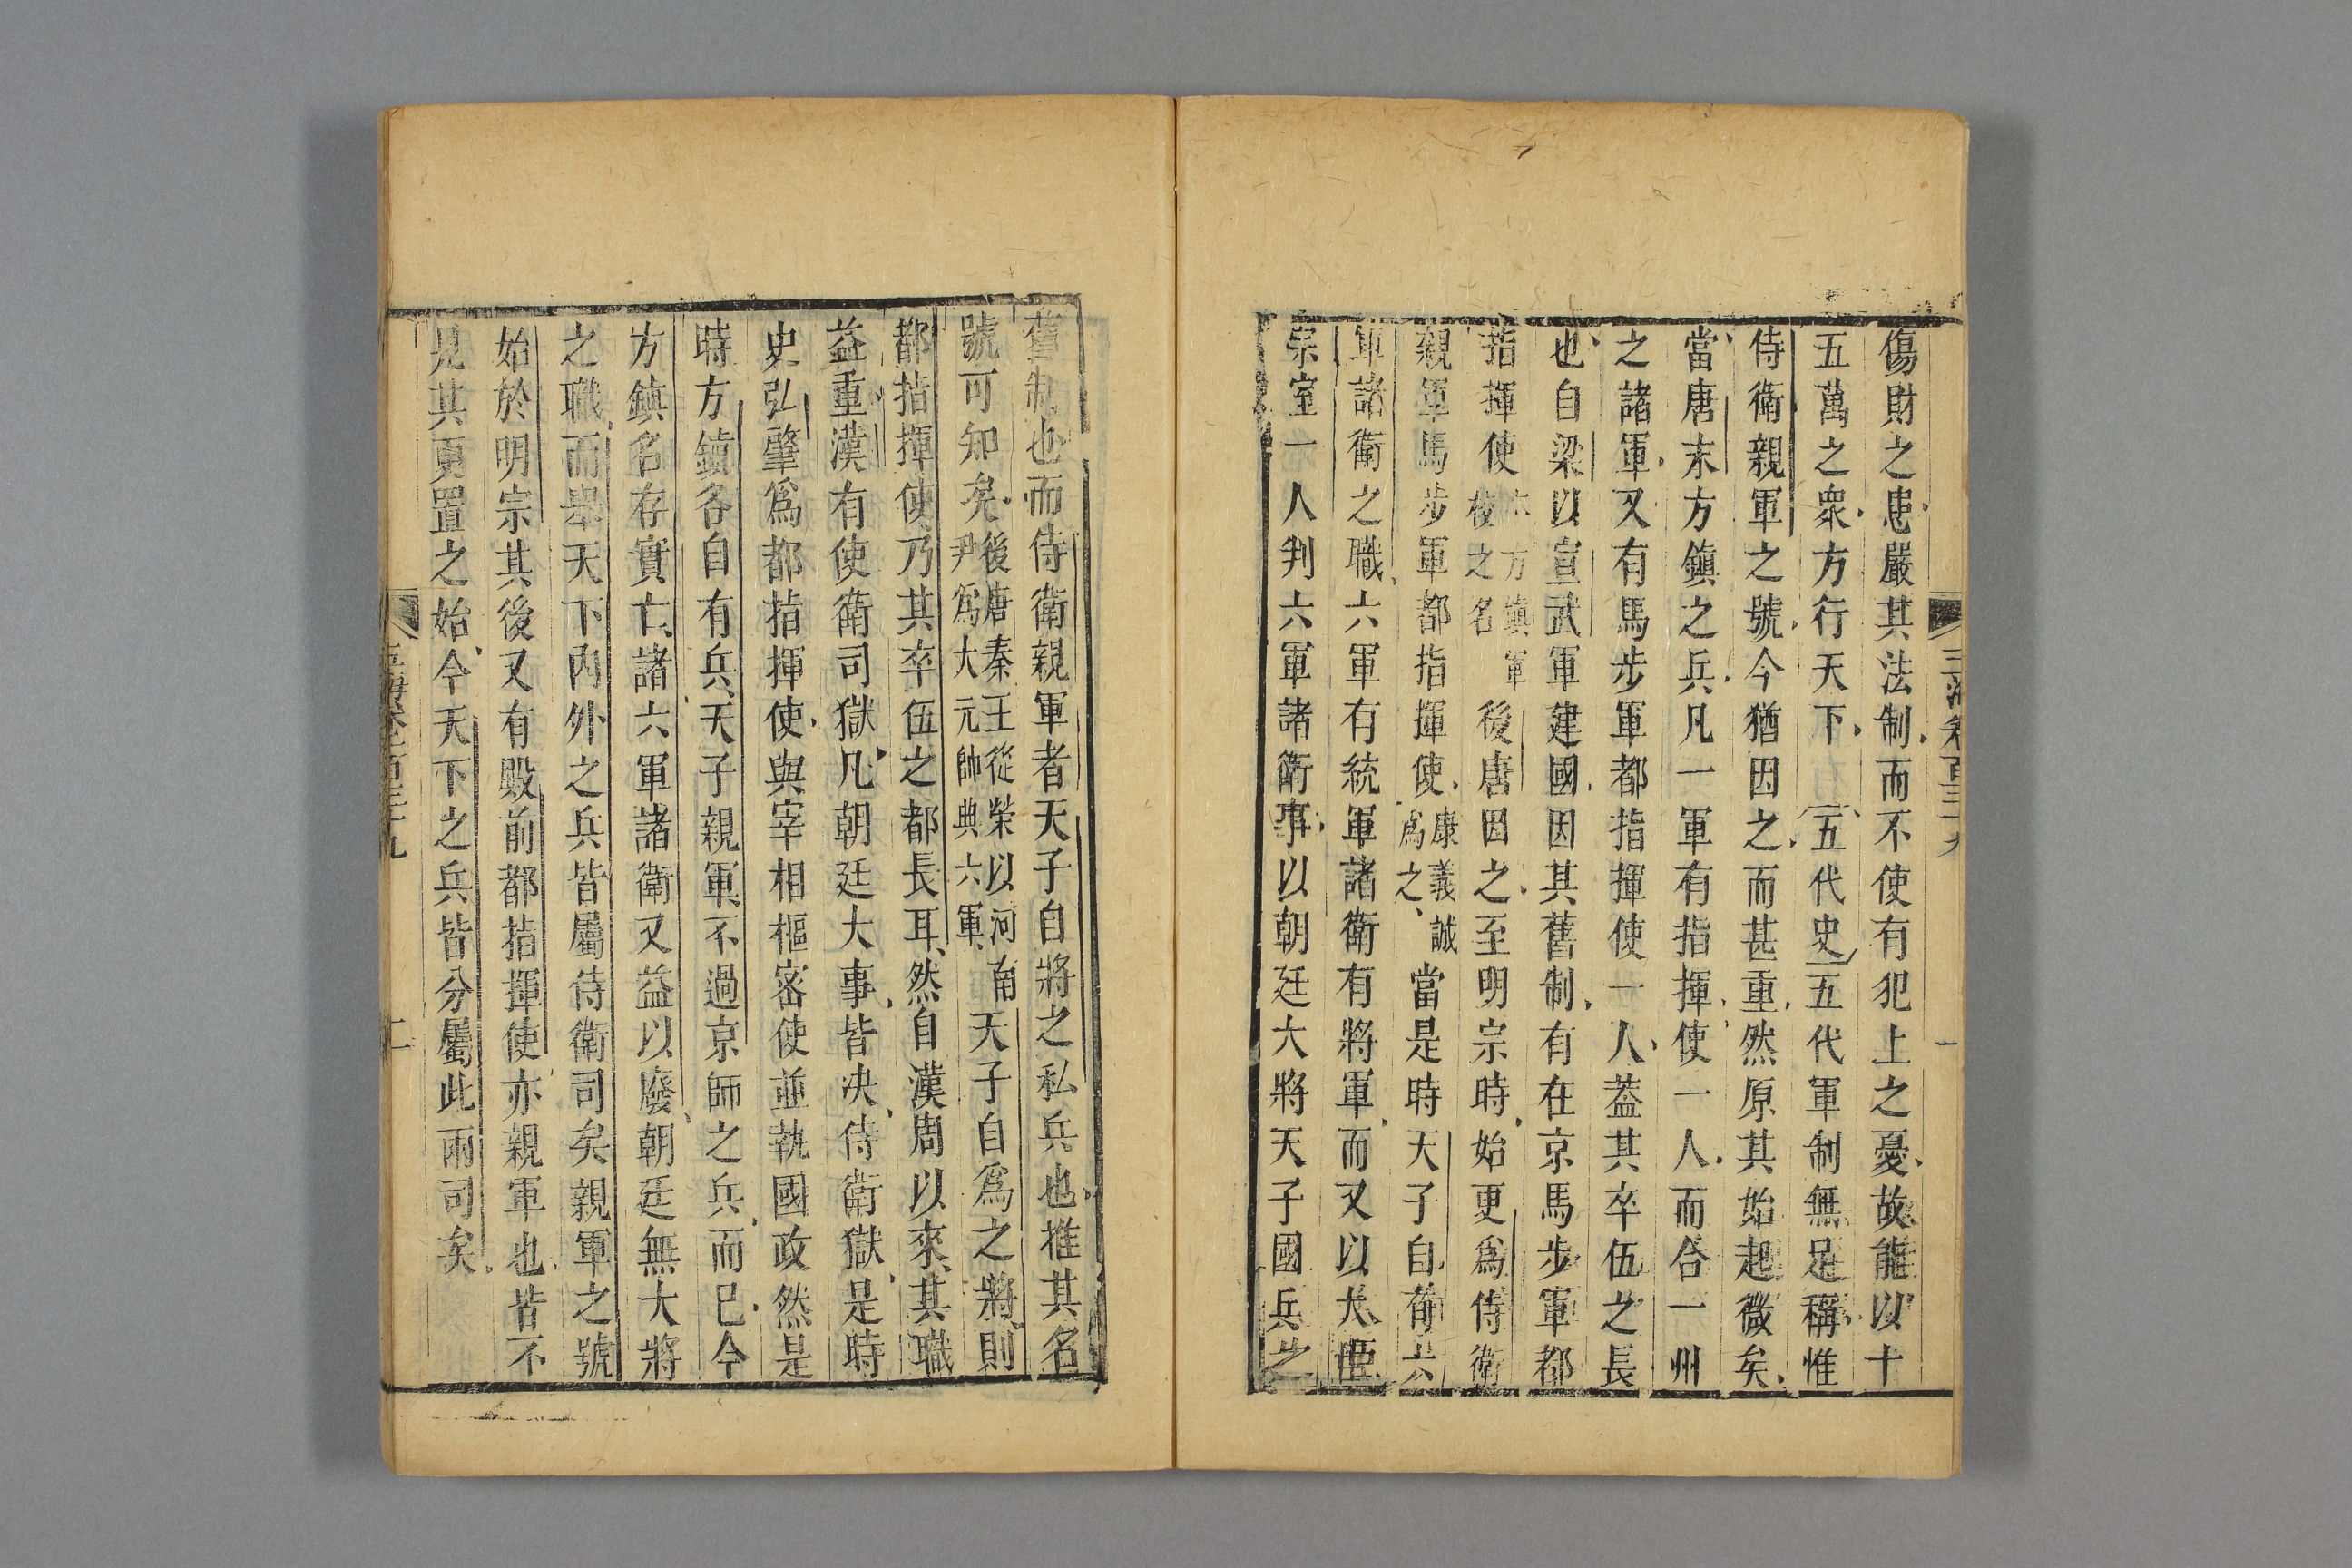 傷財之患嚴其法制而不使有犯上之憂故能以十
五萬之衆方行天下五代史五代軍制無足稱惟
侍衛親軍之號今猶因之而甚重然原其始起微矣
當唐末方鎮之兵凡一軍有指揮使一人而合一州
之諸軍又有馬步軍都指揮使一人葢其卒伍之長
也自梁以宣武軍建國因其舊制有在京馬步軍都
指揮使方鎮軍校之名後唐因之至明宗時始更爲侍衛
親軍馬步軍都指揮使康義誠爲之當是時天子自有六
軍諸衛之職六軍有統軍諸衛有將軍而又以大臣
宗室一人判六軍諸衛事以朝廷大將天子國兵之
舊制也而侍衛親軍者天子自將之私兵也推其名
號可知矣後唐秦王從榮以河南尹爲大元帥典六軍天子自爲之將則
都指揮使乃其卒伍之都長耳然自漢周以來其職
益重漢有使衛司獄凡朝廷大事皆决侍衛獄是時
史弘肇爲都指揮使與宰相樞密使並執國政然是
時方鎮各自有兵天子親軍不過京師之兵而已今
方鎮名存實亡諸六軍諸衛又益以廢朝廷無大將
之職而舉天下內外之兵皆屬侍衛司矣親軍之號
始於明宗其後又有殿前都指揮使亦親軍也皆不
見其更置之始今天下之兵皆分屬此兩司矣